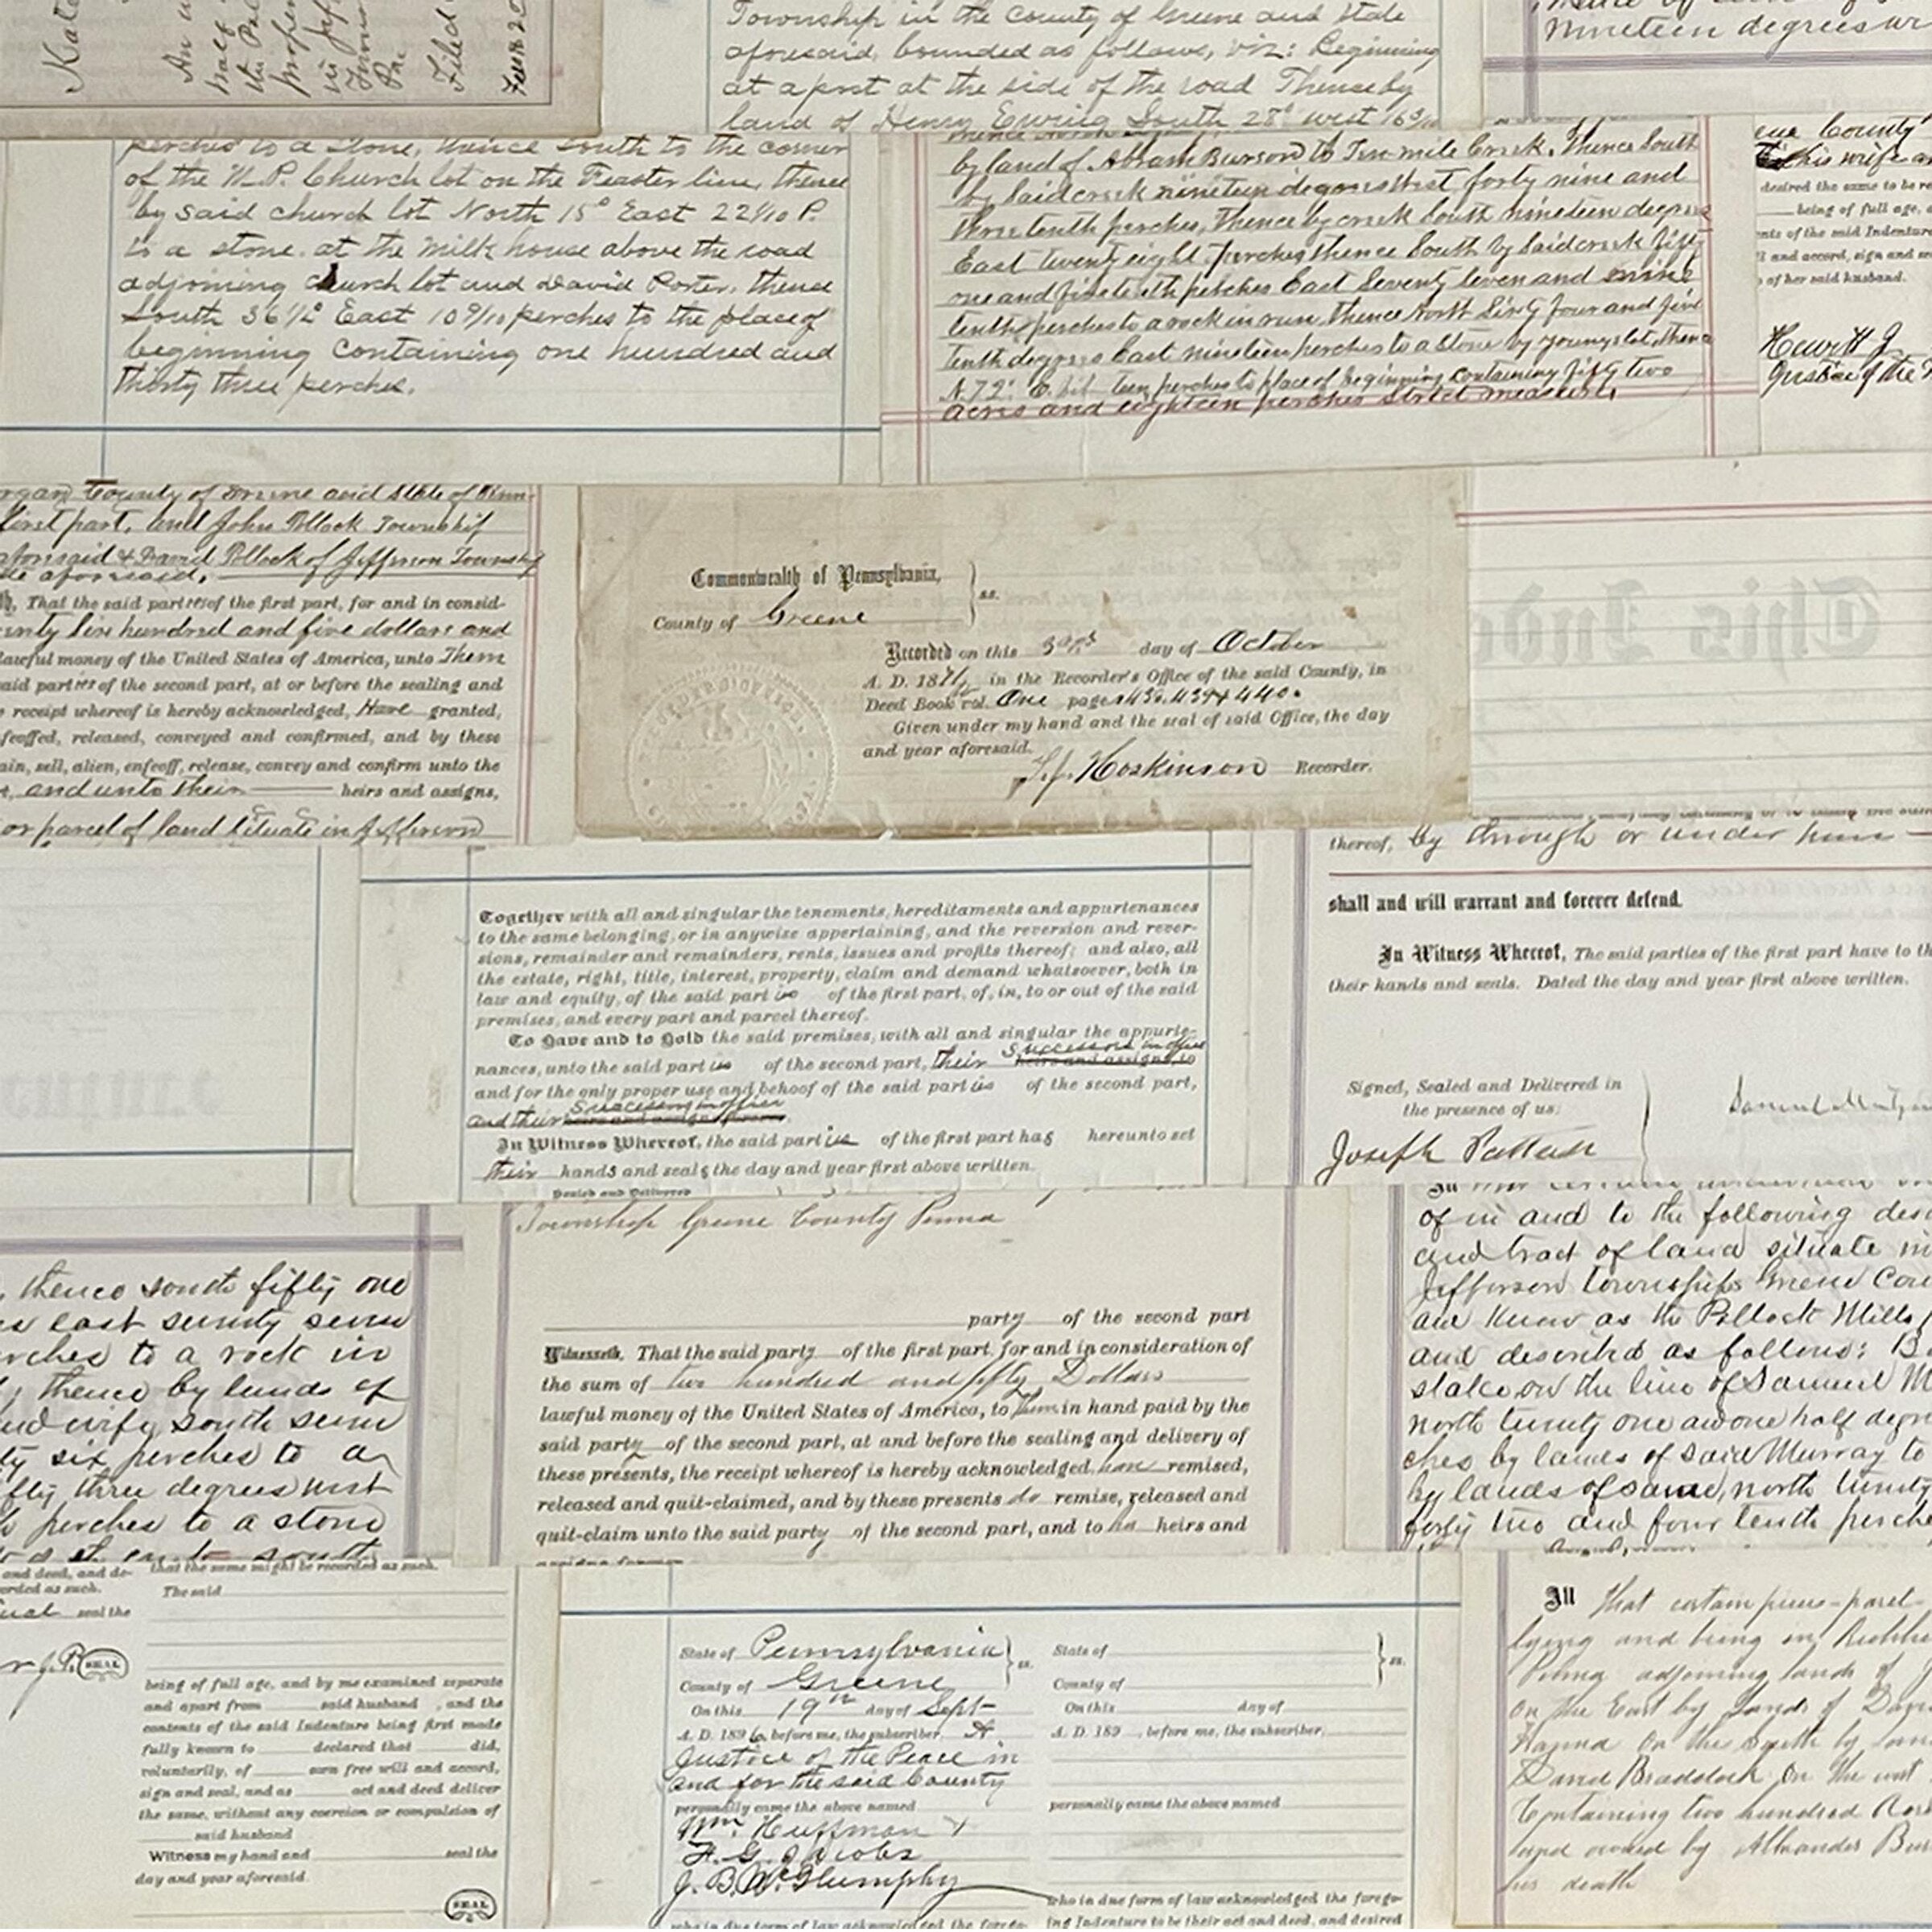 Township in the County of Greene and State
aforesaid, bounded as follows, viz: Beginning
at a post at the side of the road Thence by
land of Henry Ewing South 28° west
nineteen degrees
Filed
perches to a Stone, thence South to the corner
of the M.P. Church lot on the Feaster line, thence
by said church lot North 15° East 22 1/10 P.
to a stone at the milk house above the road
adjoining church lot and David Porter, thence
South 36 1/2° East 10 9/10 perches to the place of
beginning Containing one hundred and
thirty three perches.
by land of Abram Burson to Ten mile Creek. Thence South
by Said creek nineteen degrees West forty nine and
three tenth perches, Thence by creek South nineteen degrees
East twenty eight perches thence South by Said creek fifty
one and five tenth perches East Seventy Seven and nine
tenth perches to a rock in run, thence North Sixty four and five
tenth degrees East nineteen perches to a Stone by youngs lot, thence
N. 72° E. teen perches to place of beginning containing fifty two
acres and eighteen perches Strict measure.
County
his wife
desired the same to be
being of full age,
of the said Indenture
and accord, sign and
of her said husband.
Hewitt J.
Justice of the
County of Greene and State of
first part, and John Pollock Township
aforesaid & David Pollock of Jefferson Township
aforesaid.
That the said parties of the first part, for and in consid-
five hundred and five dollars and
lawful money of the United States of America, unto Them
said parties of the second part, at or before the sealing and
receipt whereof is hereby acknowledged, Have granted,
enfeoffed, released, conveyed and confirmed, and by these
sell, alien, enfeoff, release, convey and confirm unto the
and unto their heirs and assigns,
or parcel of land Situate in Jefferson
Commonwealth of Pennsylvania,
County of Greene } ss.
Recorded on this day of October
A. D. 18 in the Recorder's Office of the said County, in
Deed Book vol. One pages 438. 439 & 440.
Given under my hand and the seal of said Office, the day
and year aforesaid.
Hoskinson Recorder.
This Inde
Together with all and singular the tenements, hereditaments and appurtenances
to the same belonging, or in anywise appertaining, and the reversion and rever-
sions, remainder and remainders, rents, issues and profits thereof; and also, all
the estate, right, title, interest, property, claim and demand whatsoever, both in
law and equity, of the said parties of the first part, of, in, to or out of the said
premises, and every part and parcel thereof.
To Have and to Hold the said premises, with all and singular the appurte-
Successors in office
nances, unto the said parties of the second part, their heirs and assigns, to
and for the only proper use and behoof of the said parties of the second part,
Successors in office
and their heirs and assigns forever.
In Witness Whereof, the said parties of the first part has hereunto set
their hands and seals the day and year first above written.
Sealed and Delivered
thereof, by through or under
shall and will warrant and forever defend.
In Witness Whereof, The said parties of the first part have to
their hands and seals. Dated the day and year first above written.
Signed, Sealed and Delivered in
the presence of us:
Samuel
Joseph
thence south fifty one
east seventy seven
perches to a rock in
thence by lands of
and wife south seven
six perches to a
fifty three degrees west
perches to a stone
Township Greene County Penna
party of the second part
Witnesseth, That the said party of the first part, for and in consideration of
the sum of two hundred and fifty Dollars
lawful money of the United States of America, to them in hand paid by the
said party of the second part, at and before the sealing and delivery of
these presents, the receipt whereof is hereby acknowledged have remised,
released and quit-claimed, and by these presents do remise, released and
quit-claim unto the said party of the second part, and to his heirs and
of in and to the following
and tract of land situate in
Jefferson township Greene
and know as the Pollock Mills
and described as follows:
stake on the line of Samuel
north twenty one and one half
by lands of said Murray to
by lands of same, north twenty
forty two and four tenth
and deed, and de-
recorded as such.
seal the
J.P. SEAL
that the same might be recorded as such.
The said
being of full age, and by me examined separate
and apart from said husband, and the
contents of the said Indenture being first made
fully known to declared that did,
voluntarily, of own free will and accord,
sign and seal, and as act and deed deliver
the same, without any coercion or compulsion of
said husband
Witness my hand and seal the
day and year aforesaid.
SEAL
State of Pennsylvania
County of Greene } ss.
On this 19th day of Sept
A. D. 1896, before me, the subscriber, A
Justice of the Peace in
and for the said County
personally came the above named
Wm. Huffman &
F. G. Jacobs
J. B.
who in due form of law acknowledged the forego-
State of
County of } ss.
On this day of
A. D. 189 , before me, the subscriber,
personally came the above named
who in due form of law acknowledged the forego-
ing Indenture to be their act and deed, and desired
All That certain piece - parcel
lying and being in
Penna adjoining lands of
on the East by Lands of
On the South by
David Braddock On the west
Containing two hundred
and owned by
his death